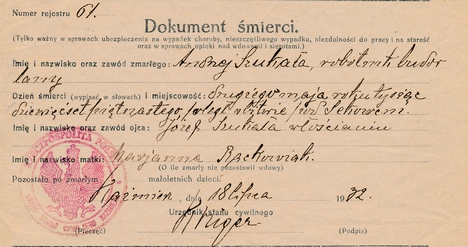 Numer rejestru 61.
Dokument śmierci.
(Tylko ważny w sprawach ubezpieczenia na wypadek choroby, nieszczęśliwego wypadku, niezdolności do pracy i na starość
oraz w sprawach opieki nad wdowami i sierotami.)
Imię i nazwisko oraz zawód zmarłego: Andrzej Szukała, robotnik budo-
lany
Dzień śmierci (wypisać w słowach) i miejscowość: Drugiego maja roku tysiąc
dziewięćset piętnastego, poległ w bitwie pod
Imię i nazwisko oraz zawód ojca: Józef Szukała włościanin
Imię i nazwisko matki: Marjanna
(O ile zmarły nie pozostawił wdowy)
Pozostało po zmarłym małoletnich dzieci.
Kaźmierz, dnia 18 lipca 1932.
Urzędnik stanu cywilnego
(Pieczęć) (Podpis)